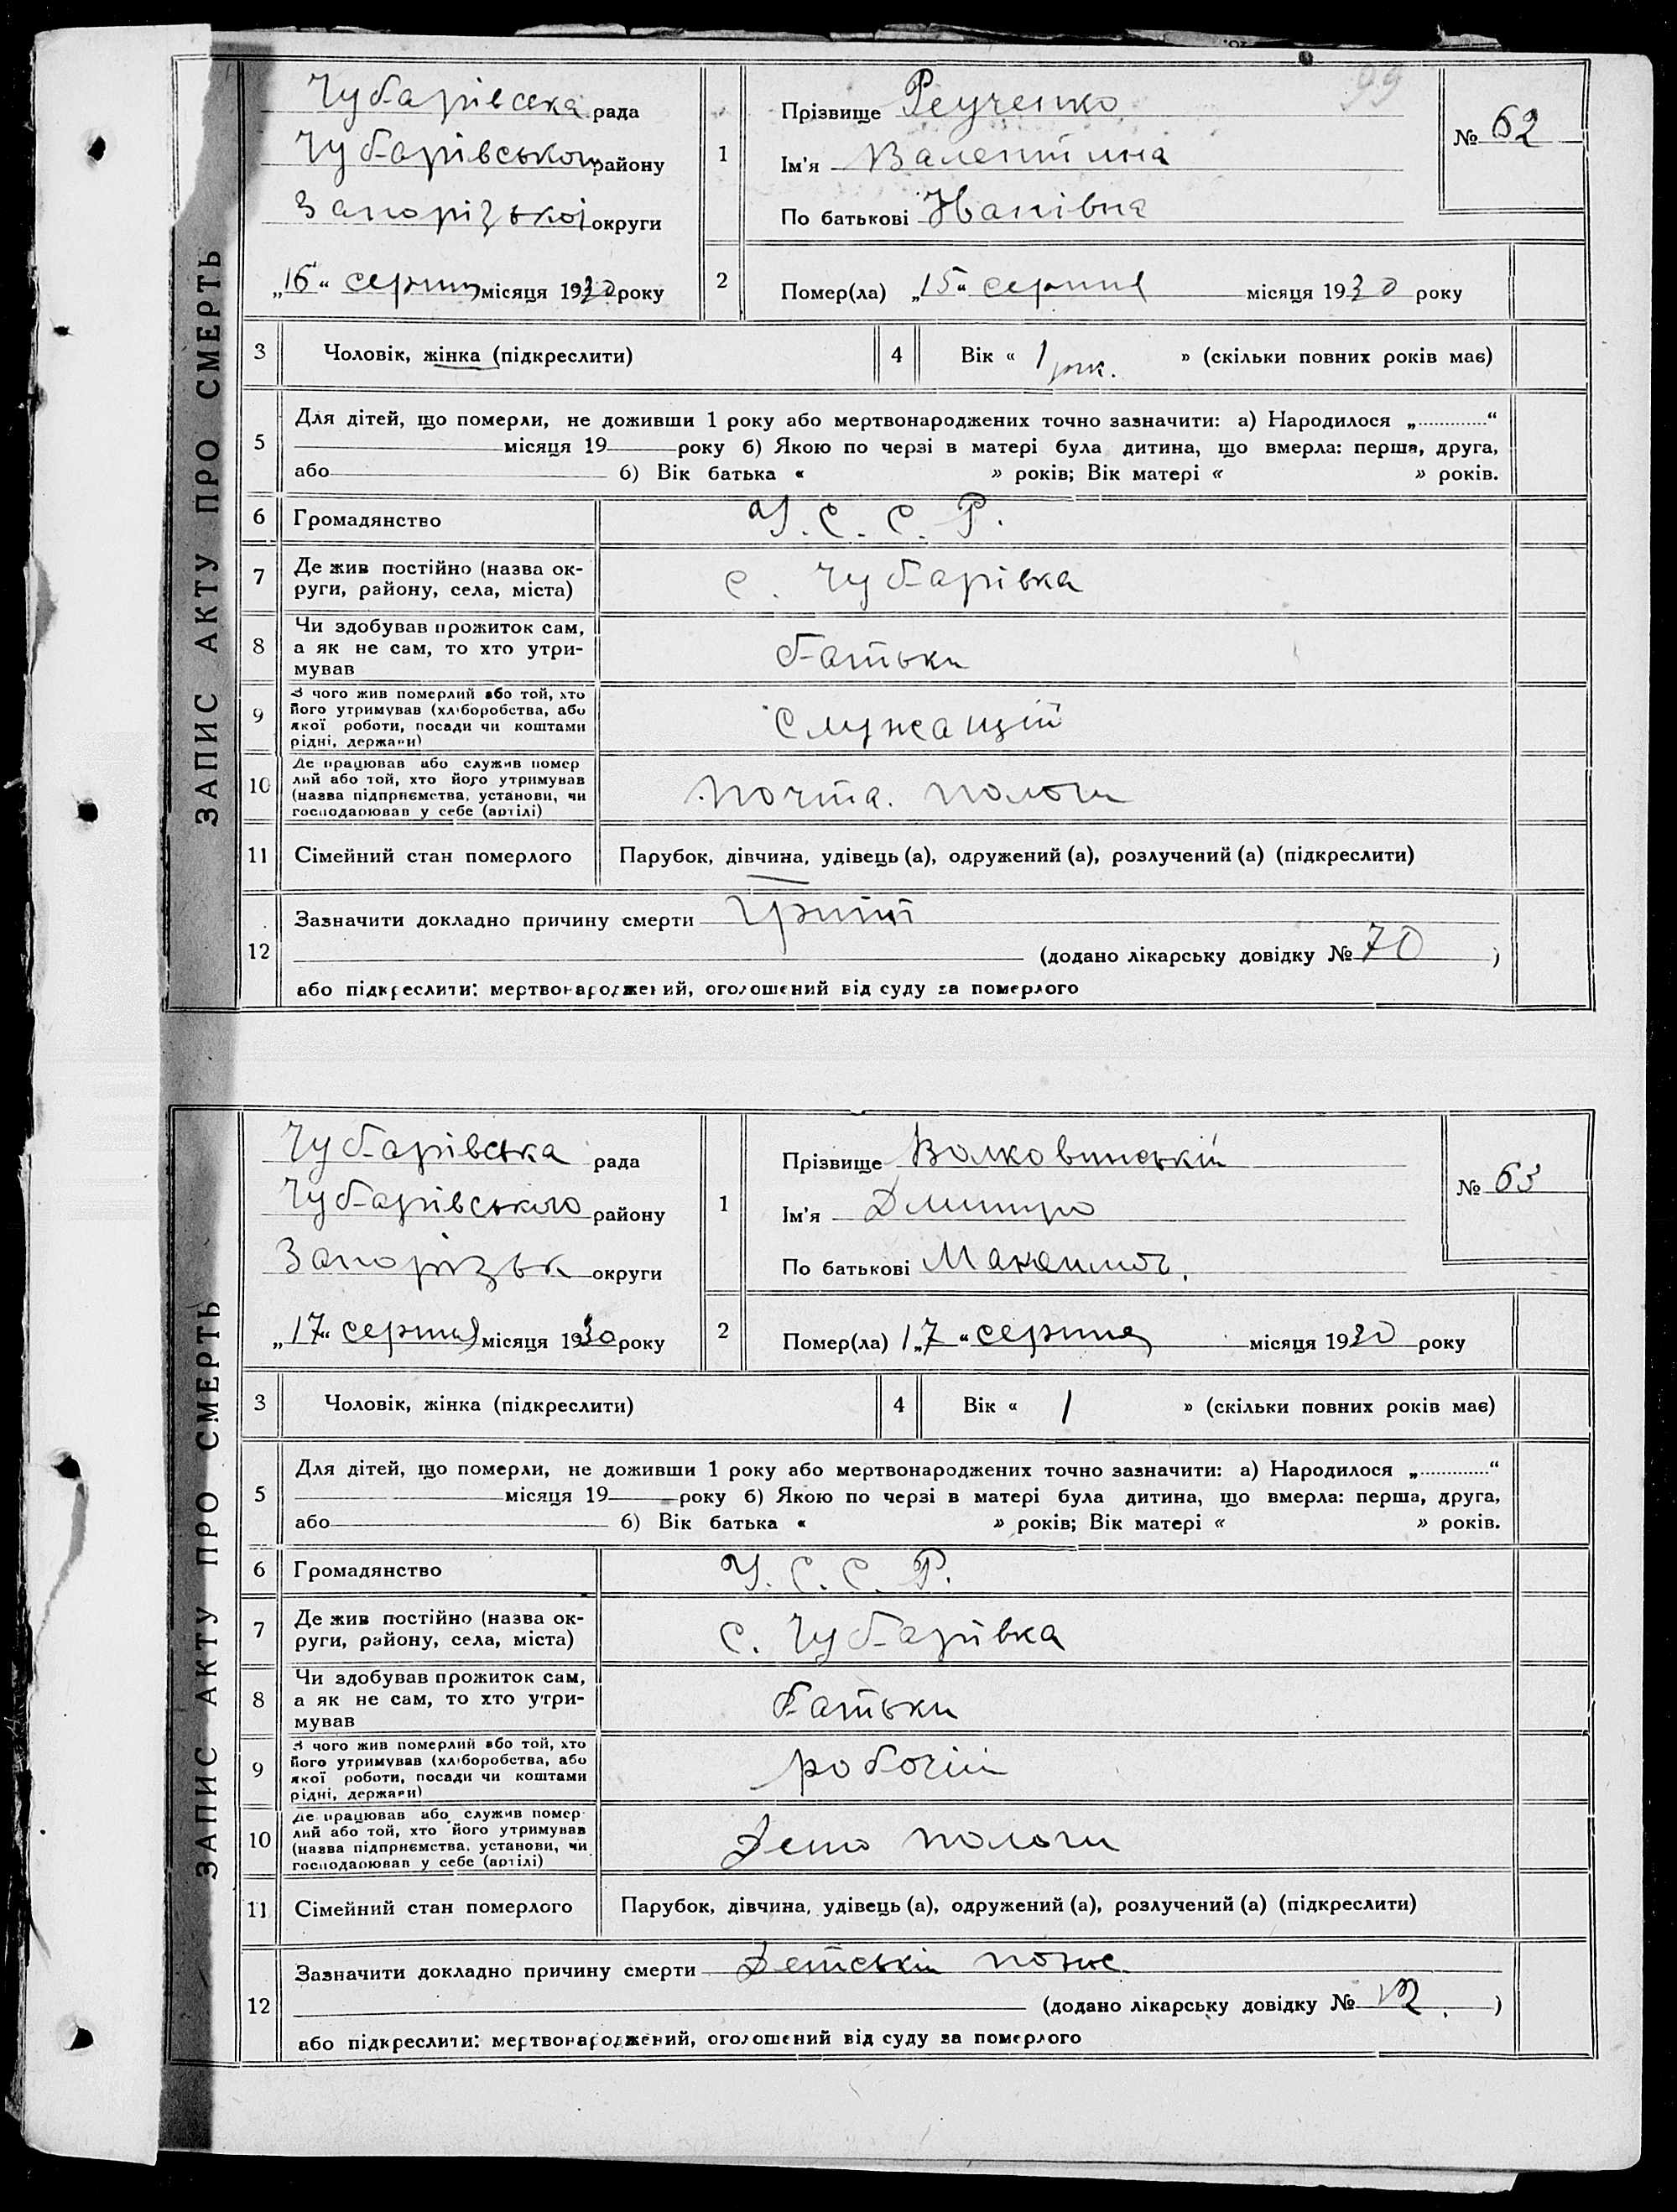 99
ЗАПИС АКТУ ПРО СМЕРТЬ
Чубарівська рада
Чубарівського району
Запорізької округи
„16“ серпня місяця 1930 року
1 Прізвище Реученко
Ім'я Валентина
По батькові Іванівна
№ 62
2 Помер(ла) „15“ серпня місяця 1930 року
3 Чоловік, жінка (підкреслити)
4 Вік « 1 рік. » (скільки повних років має)
5 Для дітей, що померли, не доживши 1 року або мертвонароджених точно зазначити: а) Народилося „ “
місяця 19 року б) Якою по черзі в матері була дитина, що вмерла: перша, друга,
або б) Вік батька « » років; Вік матері « » років.
6 Громадянство У. С. С. Р.
7 Де жив постійно (назва ок-
руги, району, села, міста) с. Чубарівка
8 Чи здобував прожиток сам,
а як не сам, то хто утри-
мував батьки
9 З чого жив померлий або той, хто
його утримував (хліборобства, або
якої роботи, посади чи коштами
рідні, держави) служащій
10 Де працював або служив помер
лий або той, хто його утримував
(назва підприємства, установи, чи
господарював у себе (артілі) почта. пологи
11 Сімейний стан померлого Парубок, дівчина, удівець (а), одружений (а), розлучений (а) (підкреслити)
12 Зазначити докладно причину смерти Грипп
(додано лікарську довідку № 70 )
або підкреслити: мертвонароджений, оголошений від суду за померлого
ЗАПИС АКТУ ПРО СМЕРТЬ
Чубарівська рада
Чубарівського району
Запорізьк округи
„17“ серпня місяця 1930 року
1 Прізвище Волковинській
Ім'я Дмитро
По батькові Максимов.
№ 63
2 Помер(ла) „17“ серпня місяця 1930 року
3 Чоловік, жінка (підкреслити)
4 Вік « 1 » (скільки повних років має)
5 Для дітей, що померли, не доживши 1 року або мертвонароджених точно зазначити: а) Народилося „ “
місяця 19 року б) Якою по черзі в матері була дитина, що вмерла: перша, друга,
або б) Вік батька « » років; Вік матері « » років.
6 Громадянство У. С. С. Р.
7 Де жив постійно (назва ок-
руги, району, села, міста) с. Чубарівка
8 Чи здобував прожиток сам,
а як не сам, то хто утри-
мував батьки
9 З чого жив померлий або той, хто
його утримував (хліборобства, або
якої роботи, посади чи коштами
рідні, держави) робочій
10 Де працював або служив помер
лий або той, хто його утримував
(назва підприємства, установи, чи
господарював у себе (артілі) Депо пологи
11 Сімейний стан померлого Парубок, дівчина, удівець (а), одружений (а), розлучений (а) (підкреслити)
12 Зазначити докладно причину смерти Детській понос
(додано лікарську довідку № )
або підкреслити: мертвонароджений, оголошений від суду за померлого